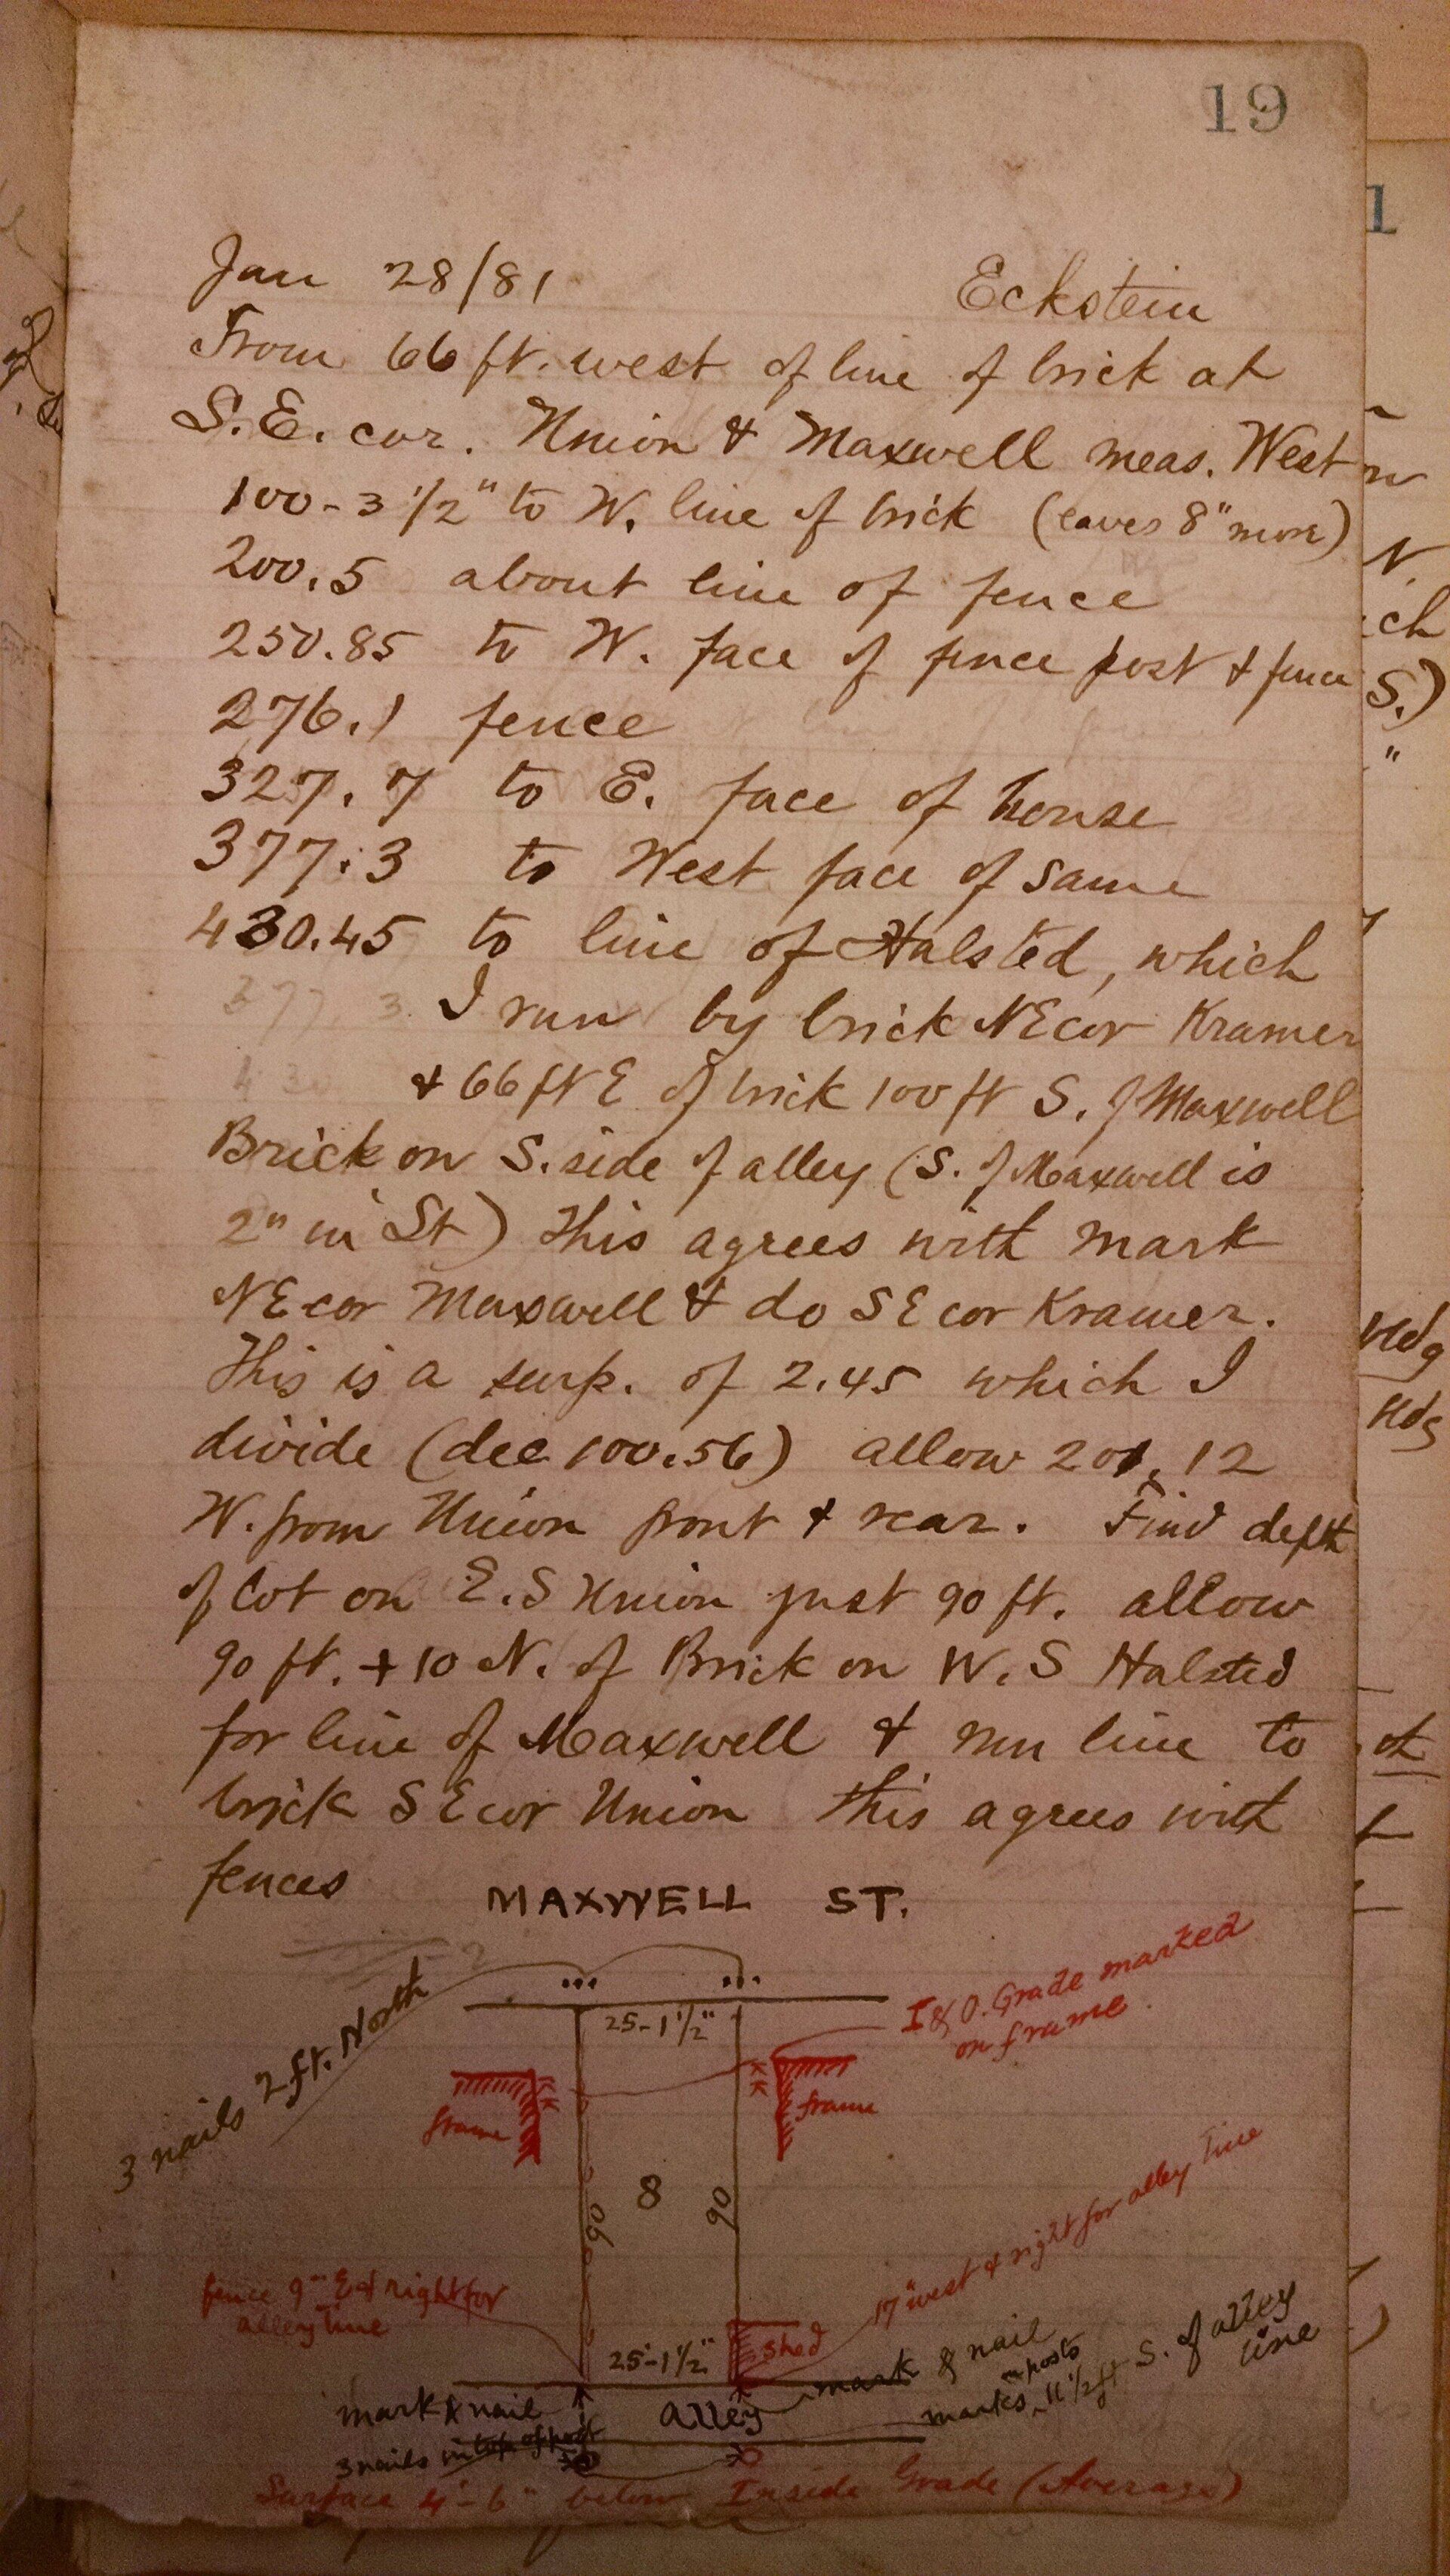 19
Jan 28/81 Eckstein
From 66 ft. west of line of brick at
S.E. cor. Union & Maxwell meas. West
100-3 1/2" to W. line of brick (eaves 8" more)
200.5 about line of fence
250.85 to W. face of fence post & fence
276.1 fence
327.7 to E. face of house
377.3 to West face of same
430.45 to line of Halsted, which
I run by brick NE cor Kramer
& 66 ft E of brick 100 ft S. of Maxwell
Brick on S. side of alley (S. of Maxwell is
2" in St) This agrees with mark
NE cor Maxwell & do SE cor Kramer.
This is a surp. of 2.45 which I
divide (dec 100.56) allow 201.12
W. from Union front & rear. Find depth
of lot on E.S Union just 90 ft. allow
90 ft. + 10 N. of Brick on W.S Halsted
for line of Maxwell & run line to
brick SE cor Union This agrees with
fences
MAXWELL ST.
3 nails 2 ft. North
25-1 1/2"
I & O. Grade marked
on frame
frame
frame
8
90
90
fence 9" E & right for
alley line
17" west & right for alley line
25-1 1/2"
Shed
mark & nail
mark & nail
in posts
marks 11 1/2 ft S. of alley
line
Alley
3 nails in top of post
Surface 4'-6" below Inside Grade (Average)